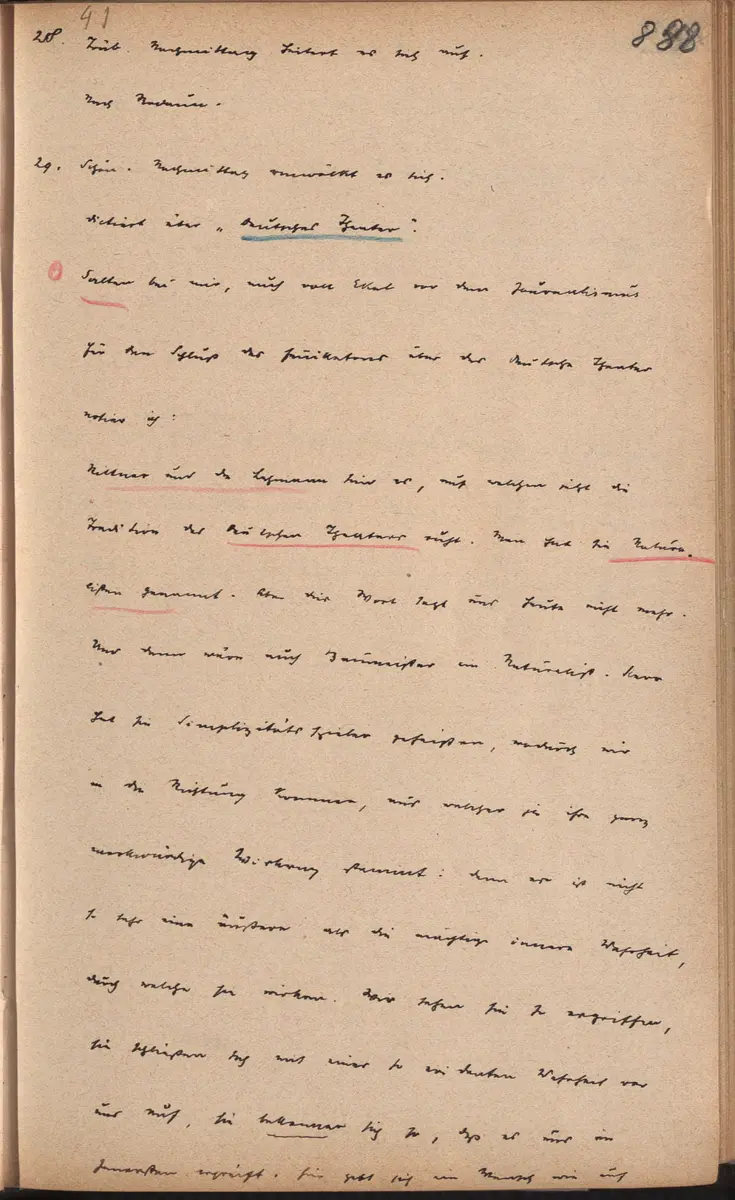 41
888
28. Trüb. Nachmittag heitert es sich auf.
Nach Rodaun.
29. Schön. Nachmittag verwölkt es sich.
dictiert über „Deutsches Theater".
Salten bei mir, auch voll Ekel vor dem Journalismus
Für den Schluß des Feuilletons über das deutsche Theater
notier ich:
Rittner und die Lehmann sind es, auf welchen jetzt die
Tradition des deutschen Theaters ruht. Man hat sie Natura-
listen genannt. Aber dies Wort sagt uns heute nicht mehr.
Und dann wäre auch Baumeister ein Naturalist. Kerr
hat sie Simplizitätsspieler geheißen, wodurch wir
in die Richtung kommen, aus welcher ja ihre ganz
merkwürdige Wirkung stammt: denn es ist nicht
so sehr eine äußere als die mächtige innere Wahrheit,
durch welche sie wirken. Wir sehen sie so ergriffen,
sie schließen sich mit einer so evidenten Wahrheit vor
uns auf, sie bekennen sich so, daß es uns im
Innersten ergreift. Hier gibt sich ein Mensch wie auf